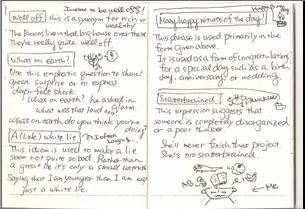 I want to be well off $$!
Well off this is a synonym for rich or wealthy
The Browns live in that big house over there.
They're really quite well off.
What on earth?
Use this emphatic question to show great surprise or to express deep-felt shock
What on earth? he asked in
what was that loud
What on earth do you think you're doing?
A (little) white lie
This idiom is used to make a lie
seem not quite so bad. Rather than
a great lie it's only a small untruth
Saying that I am younger than I am
just a white lie.
Many happy returns of the day!
This phrase is used primarily in the
form given above.
It is used as a form of congratulations
for a special day such as a birth
day, anniversary or wedding.
Scatterbrained
This expression suggests that
someone is completely disorganized
or a poor thinker
She'll never finish that project.
She's too scatterbrained.
Me